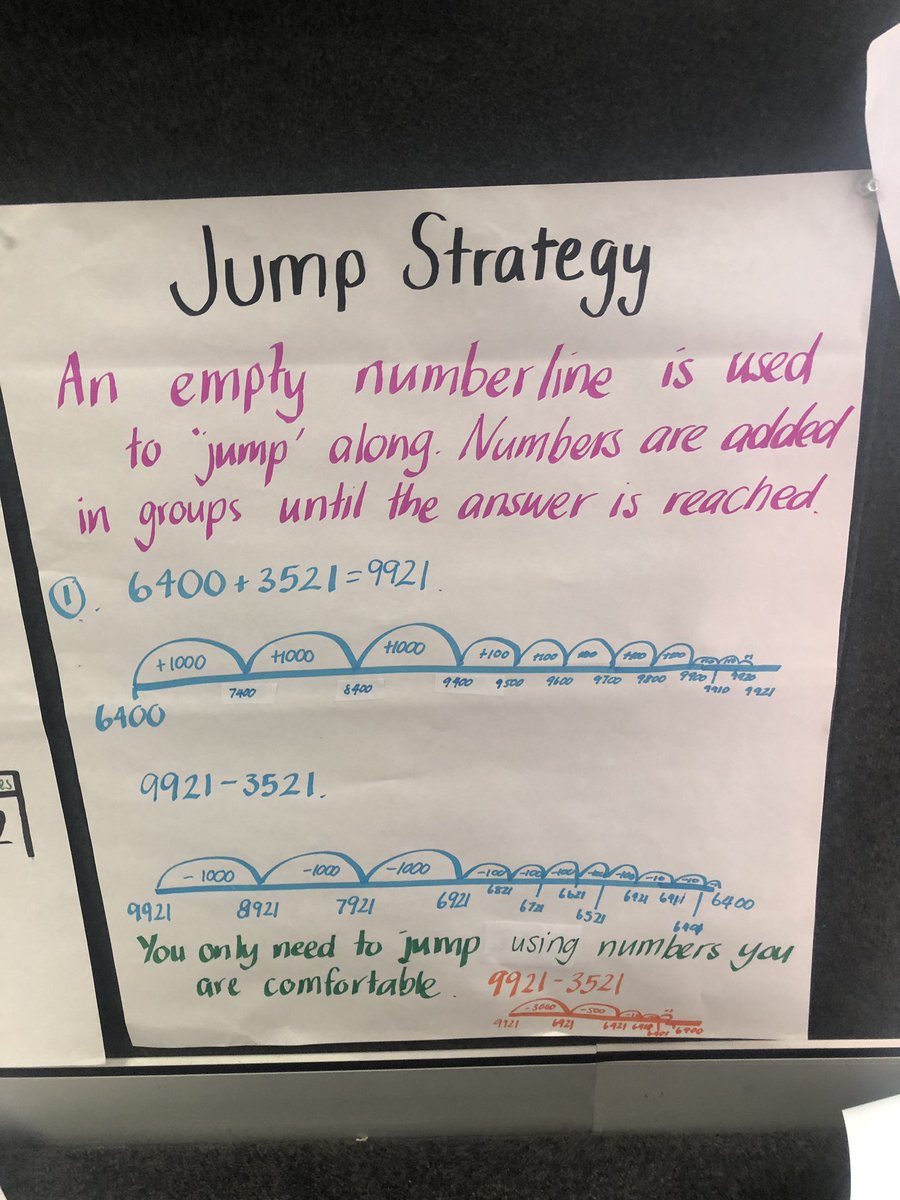 Jump Strategy
An empty numberline is used
to 'jump' along. Numbers are added
in groups until the answer is reached.
1. 6400 + 3521 = 9921.
+1000 +1000 +1000 +100 +100
6400 7400 8400 9400 9500 9600 9700 9800 9900 9910 9920 9921
9921 - 3521.
- 1000 -1000 -1000 -100 -100 -100 -10 -10
9921 8921 7921 6921 6821 6721 6621 6521 6421 6911 6400
You only need to jump using numbers you
are comfortable.
9921 - 3521
-3000 -500
9921 6921 6421 6400
es
2